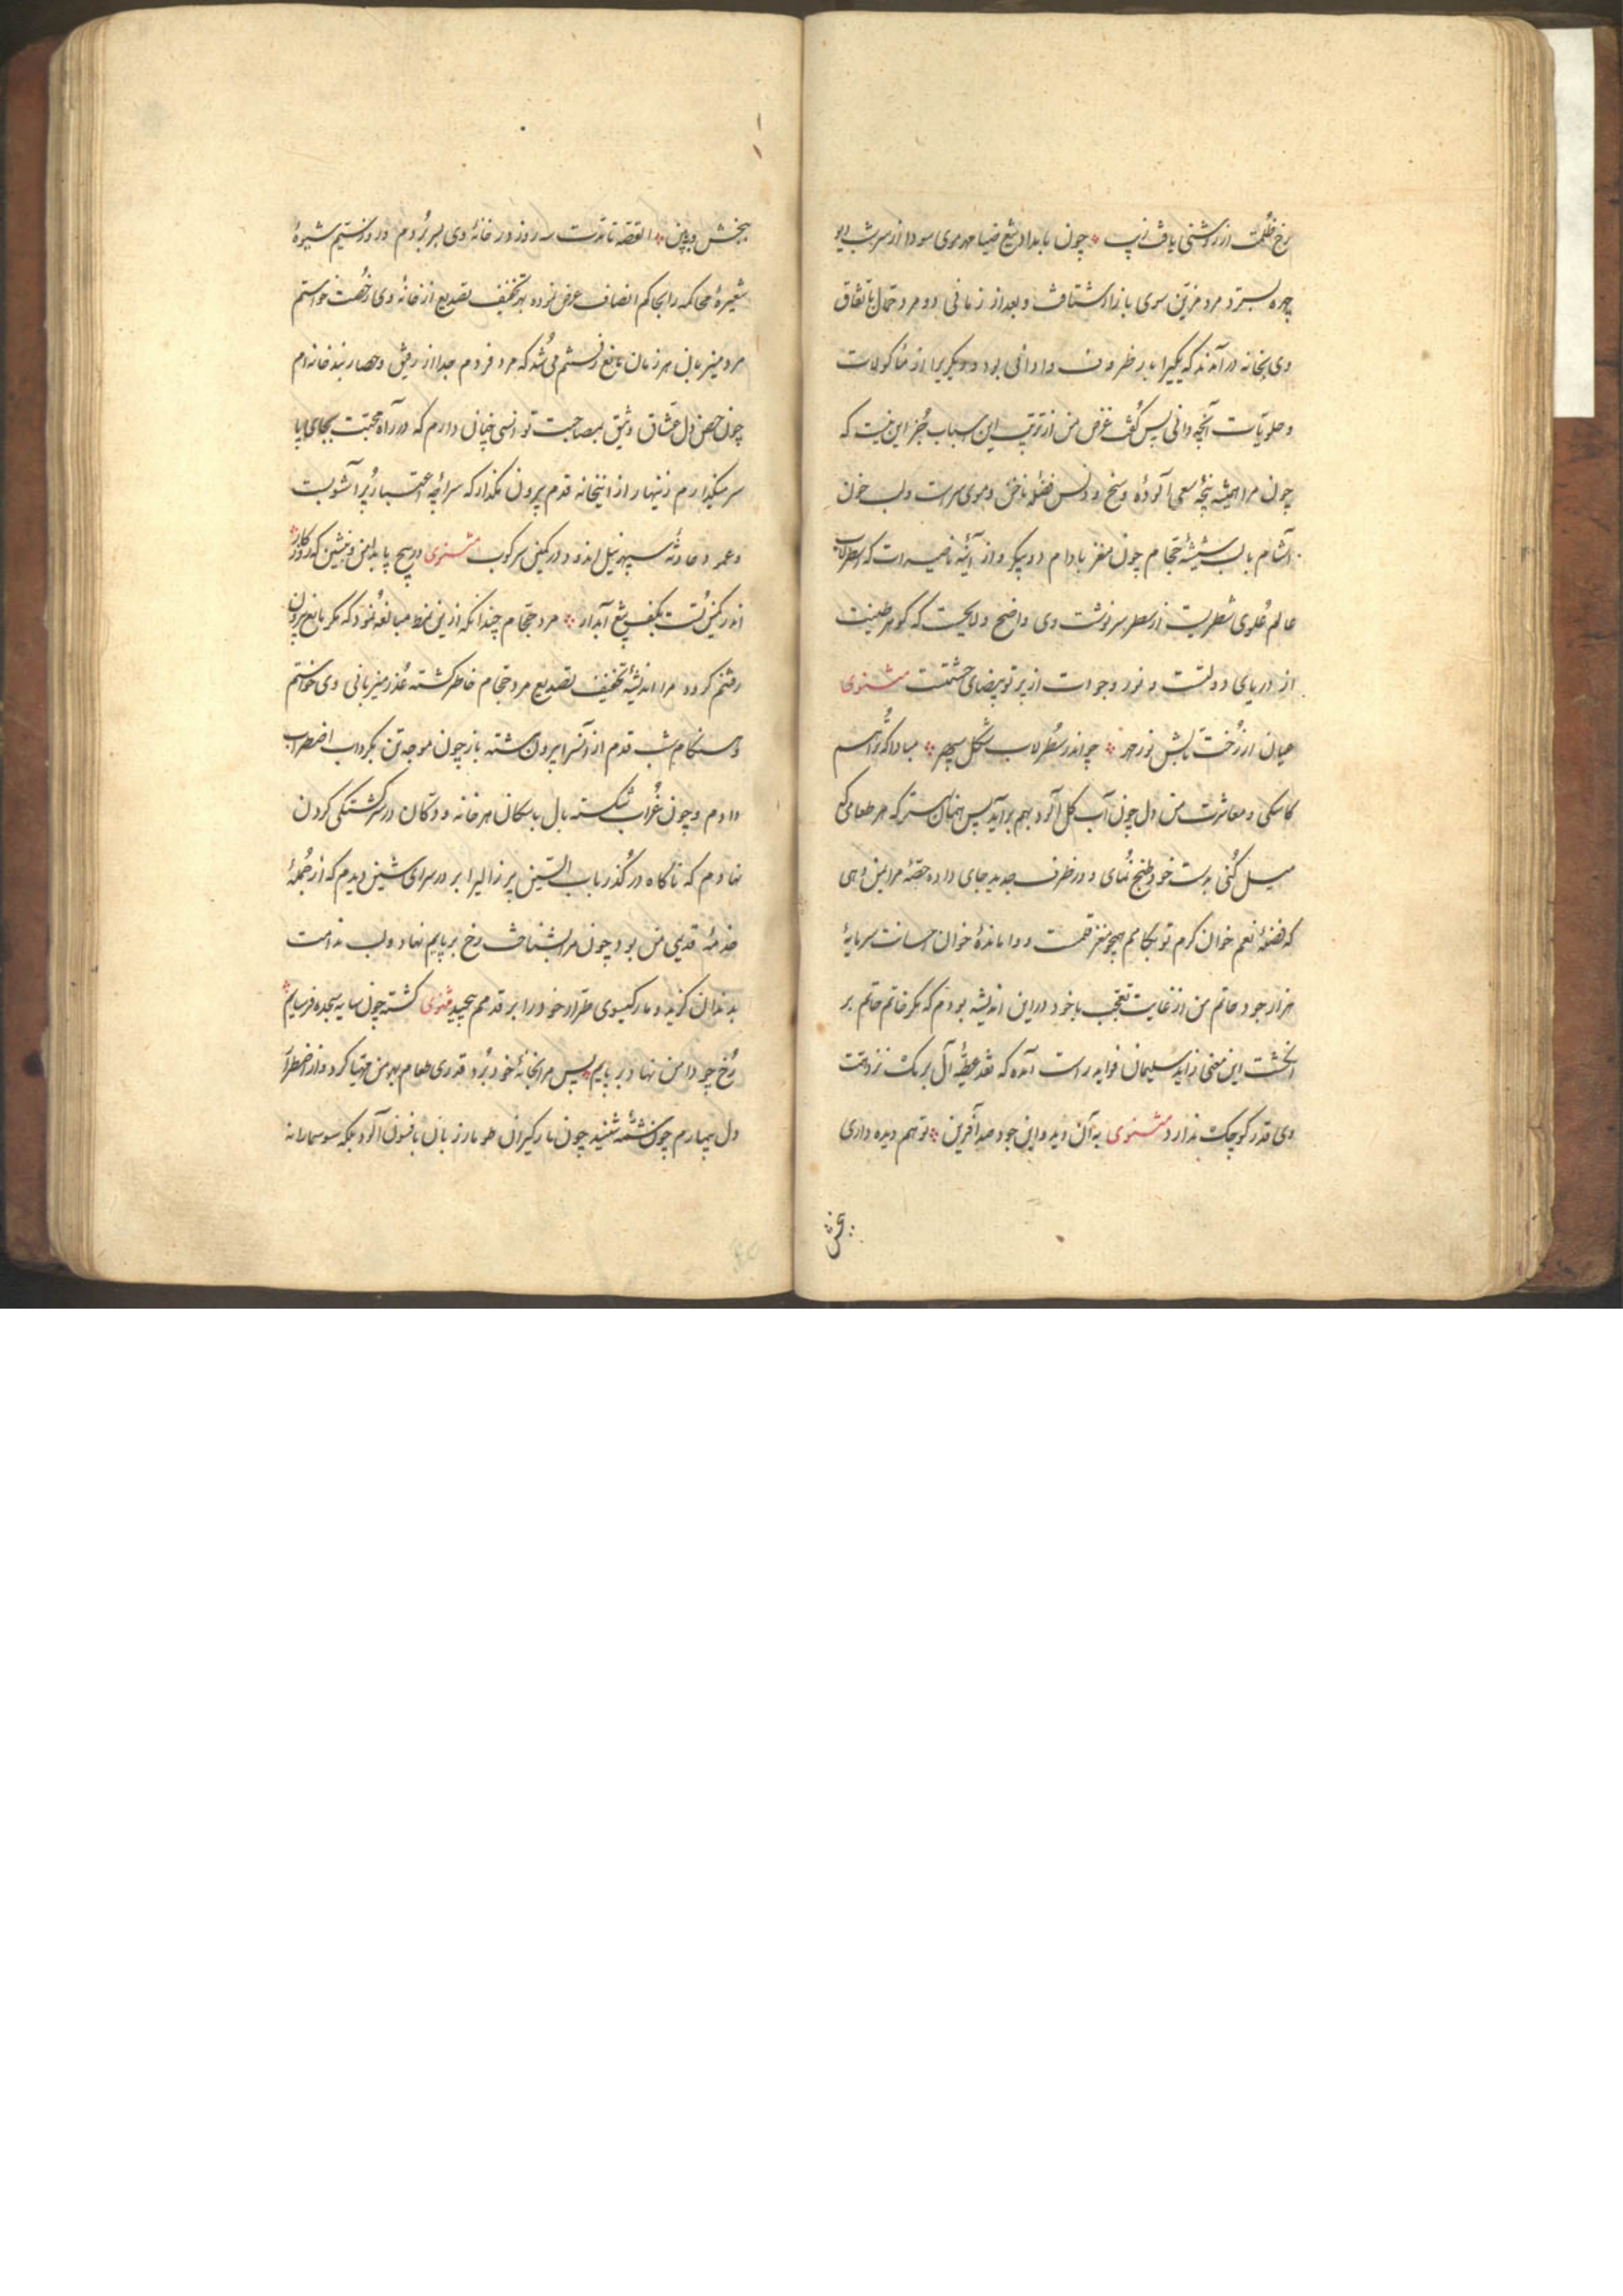 رخ ظلمت از روشنی یافت زیب چون بامداد تیغ ضیا مهر موی سودا از سر شب دیو
چهره بسترد مرد مزین سوی بازار شتافت و بعد از زمانی دو مرد حمال باتفاق
وی بخانه درآمدند که یکیرا بار ظروف و اوانی بود و دیگریرا از مأکولات
و حلویّات آنچه دانی پس گفت غرض من از ترتیب این اسباب جز این نیست که
چون مرا همیشه پنجهٔ سعی آلودهٔ وسخ و دنس فضلهٔ ناخن و موی سرست و لب خون
آشام با لب شیشهٔ حجام چون مغز بادام دو پیکر و از آئینهٔ ناصیه‌ات که اسطرلاب
عالم علوی شطریست از سطر سرنوشت وی واضح و لایحست که گوهر طینتت
از دریای دولتست و نور وجودت از پرتو بیضای حشمتت مثنوی
عیان از رخت تابش نور مهر چو اندر سطرلاب شکل سپهر مبادا که ترا از هم
کاسگی و معاشرت من دل چون آب گل‌آلود بهم برآید پس همان بهتر که هر طعامی که
میل کنی بدست خود طبخ نمای و در ظرف جدید جای داده حصهٔ مرا نیز دهی
که فضلهٔ نعم خوان کرم تو بکامم همچو مغز قلمست و واماندهٔ خوان احسانت سرمایهٔ
هزار جود حاتم من از غایت تعجب با خود در این اندیشه بودم که مگر خاتم حاتم بر
انگشت این معنی زاید سلیمان فواید راست آمده که نقد عطیّهٔ آل برمک نزد همت
وی قدر کوچک ندارد مثنوی به آن دید و این جود صد آفرین تو هم دیده داری
بخش
ببخش و ببین القصه تا مدت سه روز در خانهٔ وی بسر بردم و روز سیم شیوهٔ
شعیرهٔ محاکمه را بحاکم انصاف عرض نموده بهر تخفیف تصدیع از خانهٔ وی رخصت خواستم
مرد میزبانی هر زمان مانع رفتنم می‌شد که مرو فردم جدا از رفیق و حصار بند خانه‌ام
چون حصن دل عشاق وثیق بمصاحبت تو انسی چنان دارم که در راه محبت بجای پا
سر میگذارم زنهار از اینخانه قدم بیرون مگذار که سراچهٔ اعتبار پر آشوبست
و عمود حادثه سپهر نیل‌اندود در کمین سرکوب مثنوی در پیچ پا بدامن و بنشین که روزگار
اندر کمین تست بکف تیغ آبدار مرد حجام چندانکه ازین نمط مبالغه نمود که مگر مانع بیرون
رفتنم گردد مرا اندیشهٔ تخفیف تصدیع مرد حجام خاطر گشته عذر میزبانی وی خواستم
و هنگام شب قدم از آنسرا بیرون هشته باز چون موجه تن بگرداب اضطراب
دادم و چون غراب شکسته بال باسکان هر خانه و دکان در سرگشتگی کردن
نهادم که ناگاه در گذر باب التین پیرزالیرا بر در سرای نشین دیدم که از جملهٔ
خدمهٔ قدیمی من بود چون مرا بشناخت رخ بر پایم نهاد و لب ندامت
بدندان گزید و مار گیسوی طرار خود را بر قدمم پیچید مثنوی گشته چون سایه سجده فرسایم
رخ چو دامن نهاد بر پایم پس مرا بخانهٔ خود برد و قدری طعام بهر من مهیا کرد و از اضطراب
دل بیمارم چون شمّهٔ شنید چون مارگیران طومار زبان بافسون آلود بلکه سوسمارانه